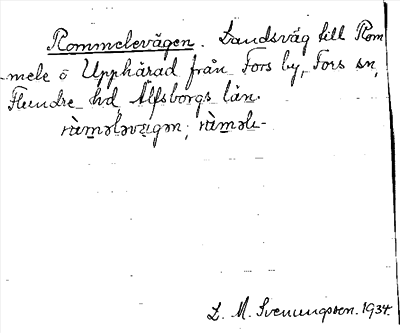 Rommelevägen. Landsväg till Rom-
mele o Upphärad från Fors by, Fors sn,
Flundre hd, Älfsborgs län.
L. M. Svenungsson. 1934.